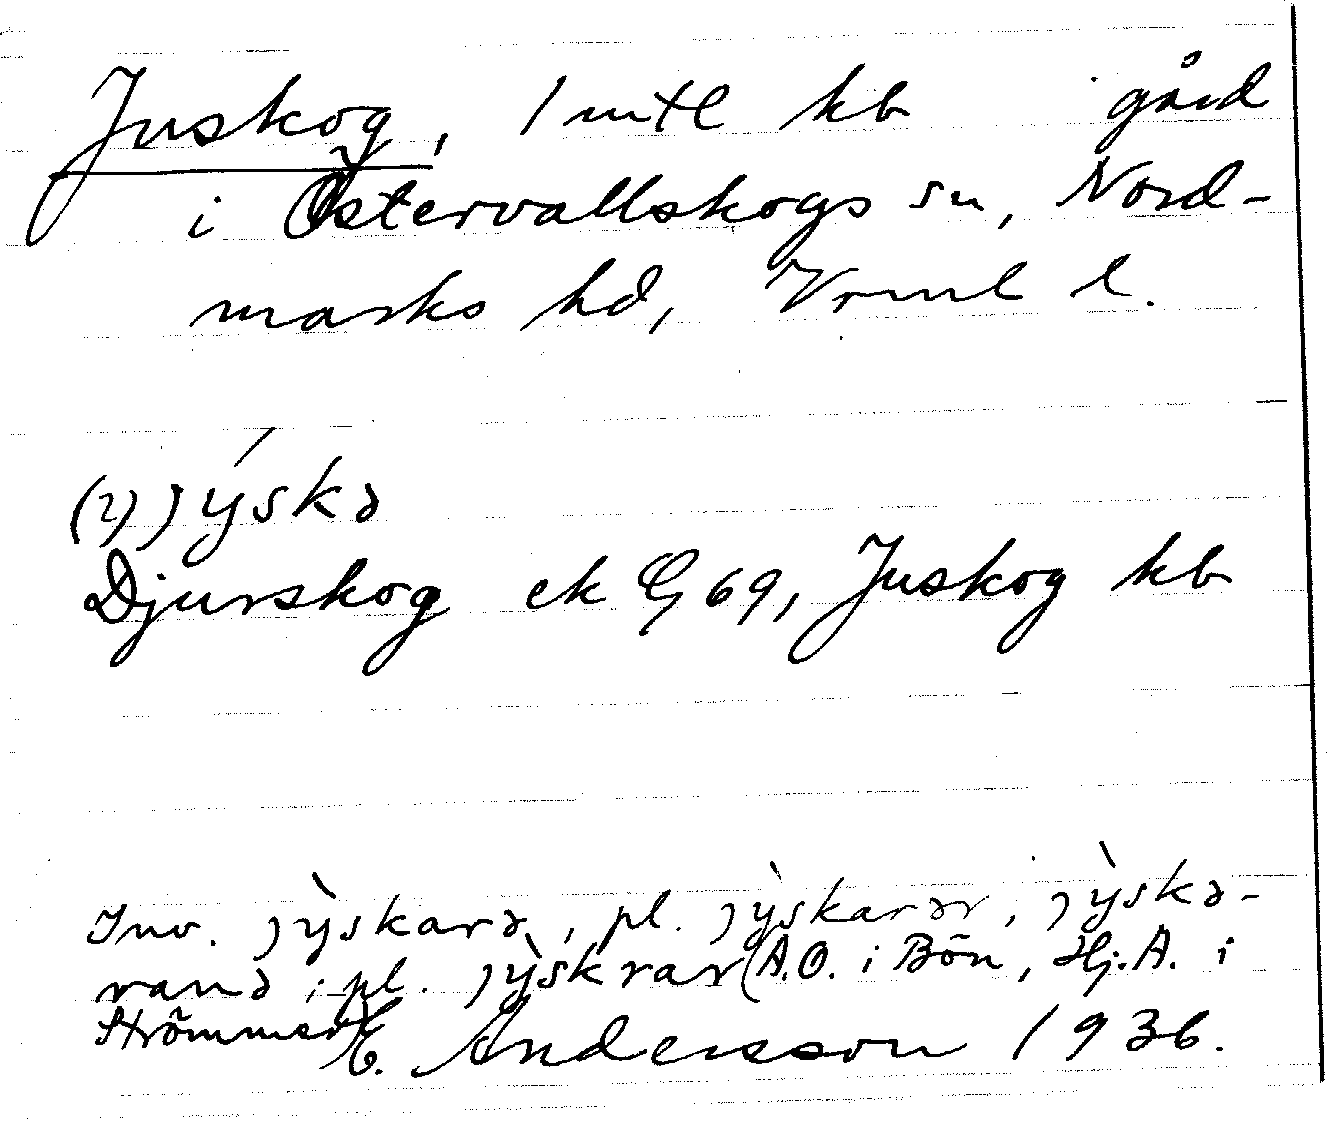 Juskog, 1 mtl kb gård
i Östervallskogs sn, Nord-
marks hd, Vrml l.
(2) jýskə
Djurskog ek G 69, Juskog kb
Inv. jỳskarə, pl. jỳskarər, jỳskə-
ranə; pl. jỳskrar (A.O. i Bön, Hj.A. i
Strömmer)
E. Andersson 1936.